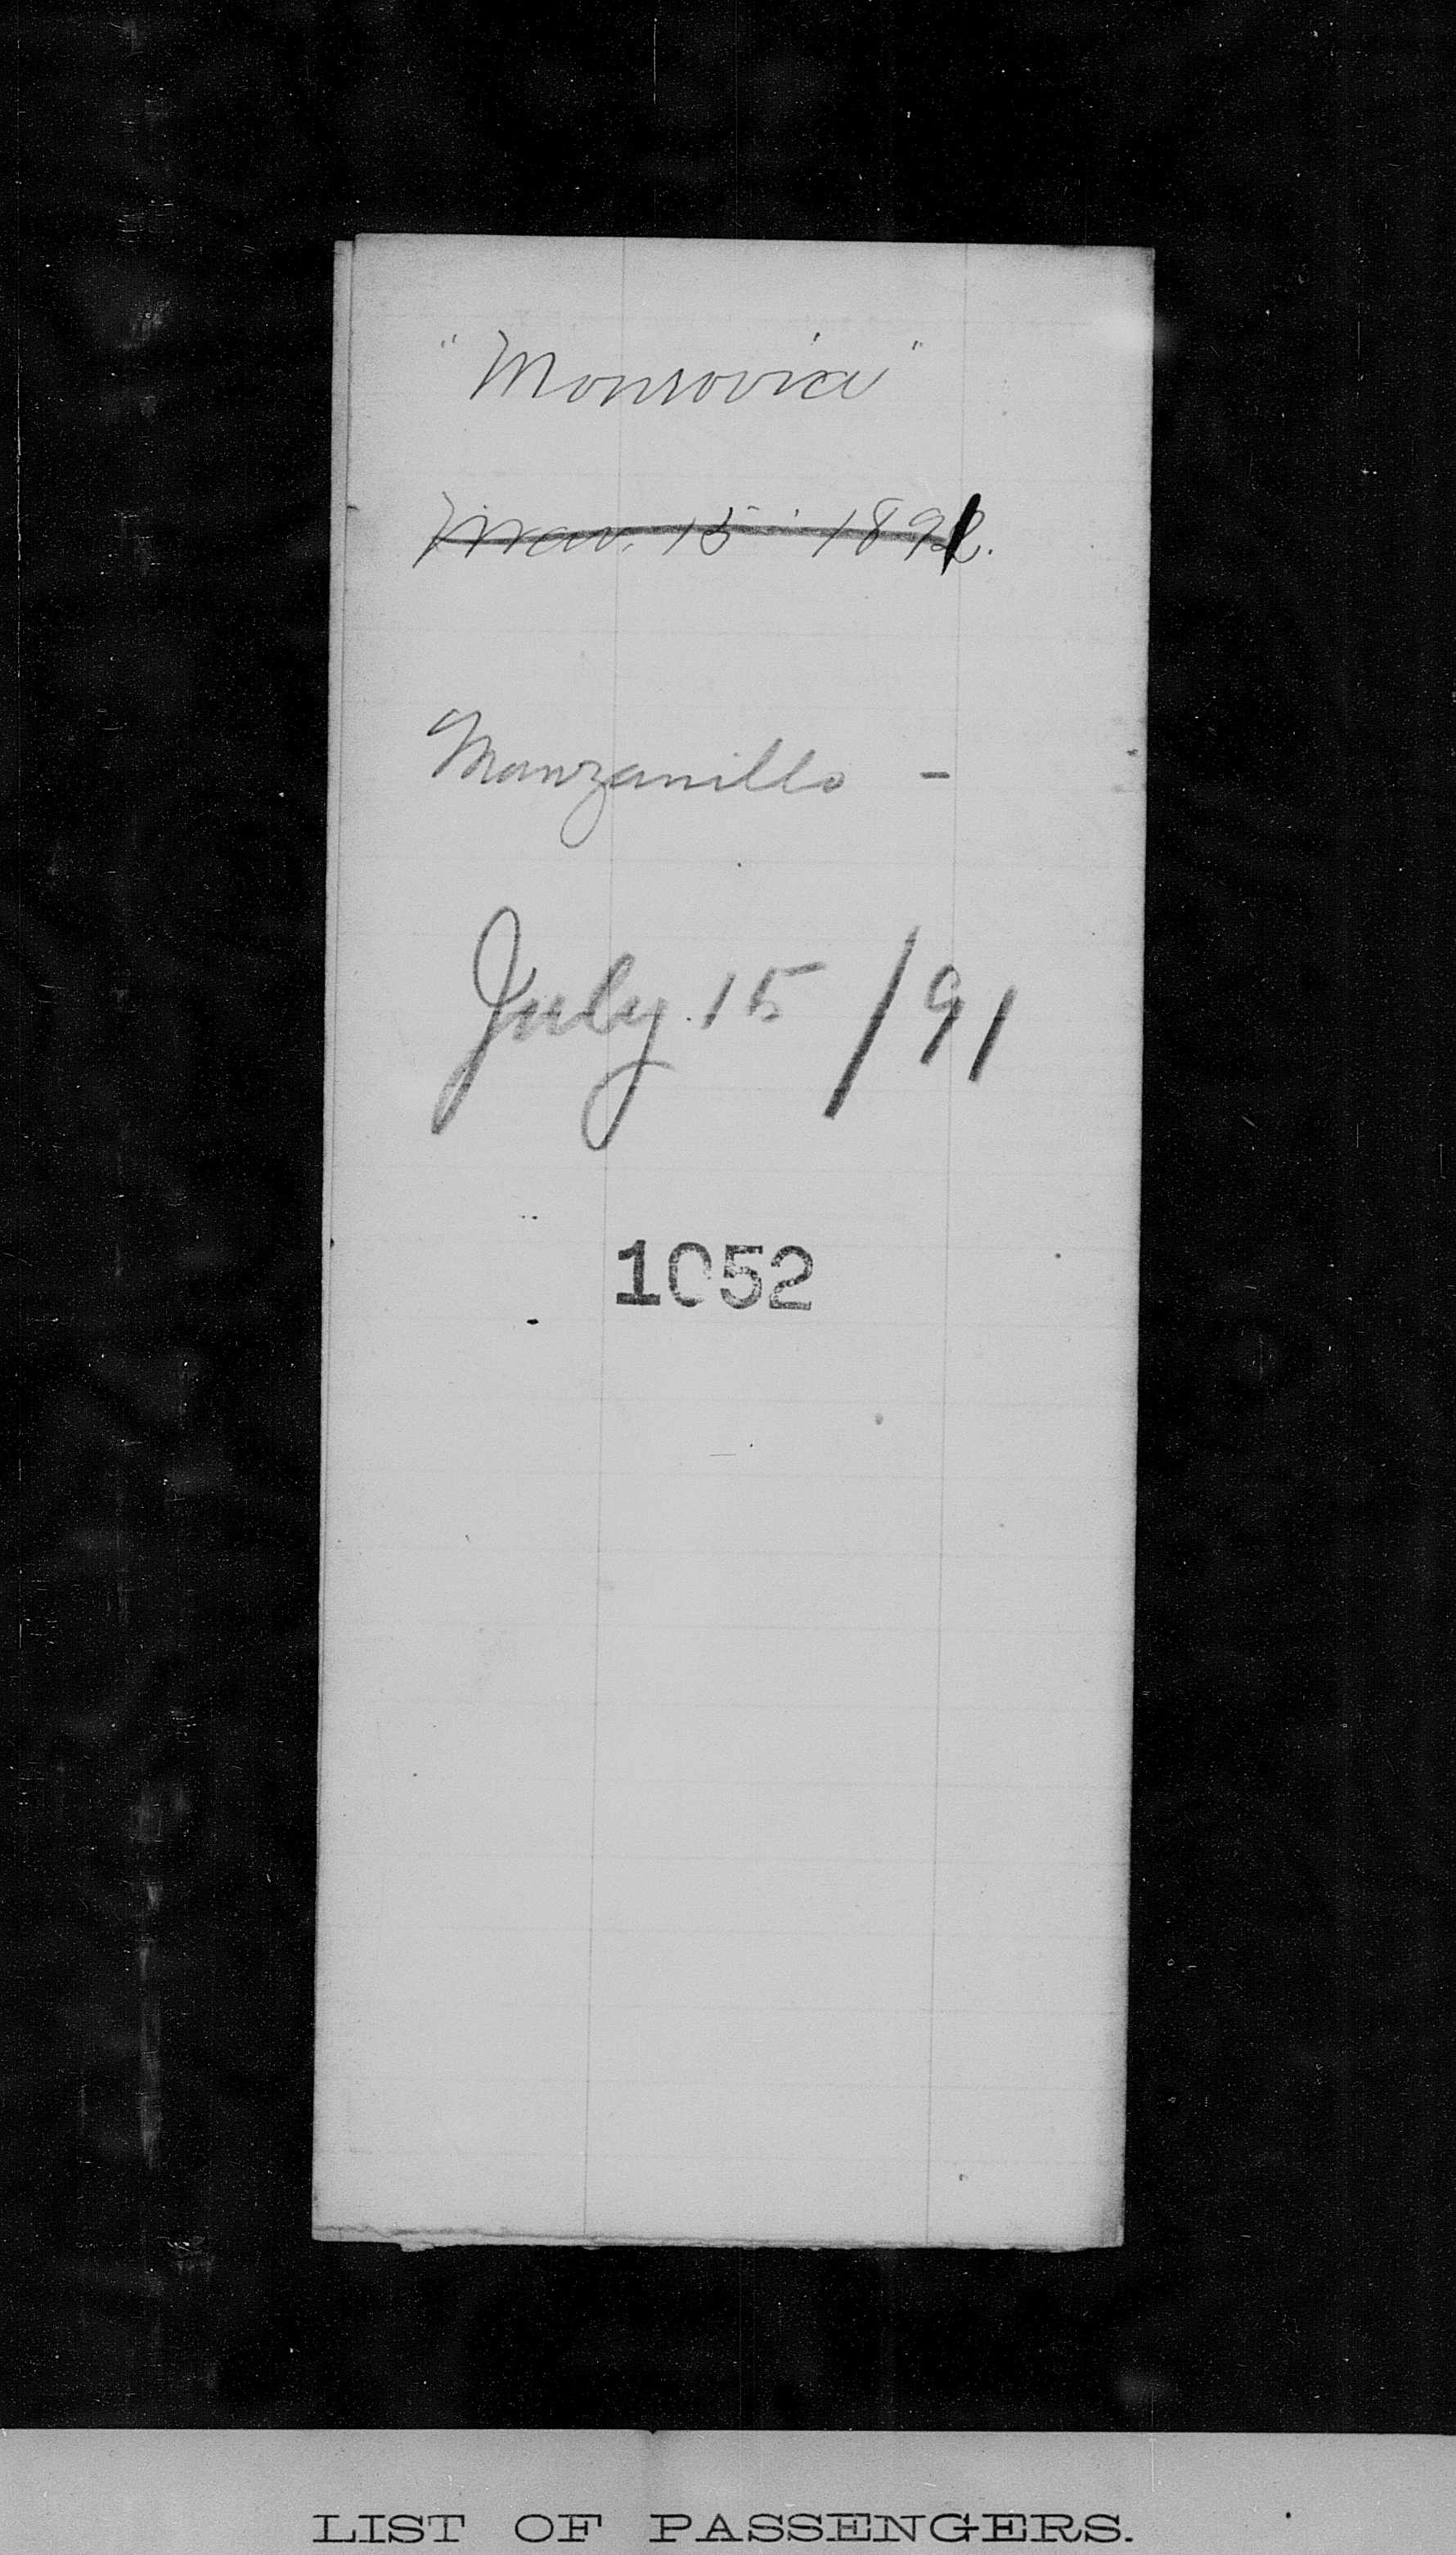 "Monrovia"
Mar. 15 1891.
Manzanillo -
July 15/91
1052
LIST OF PASSENGERS.